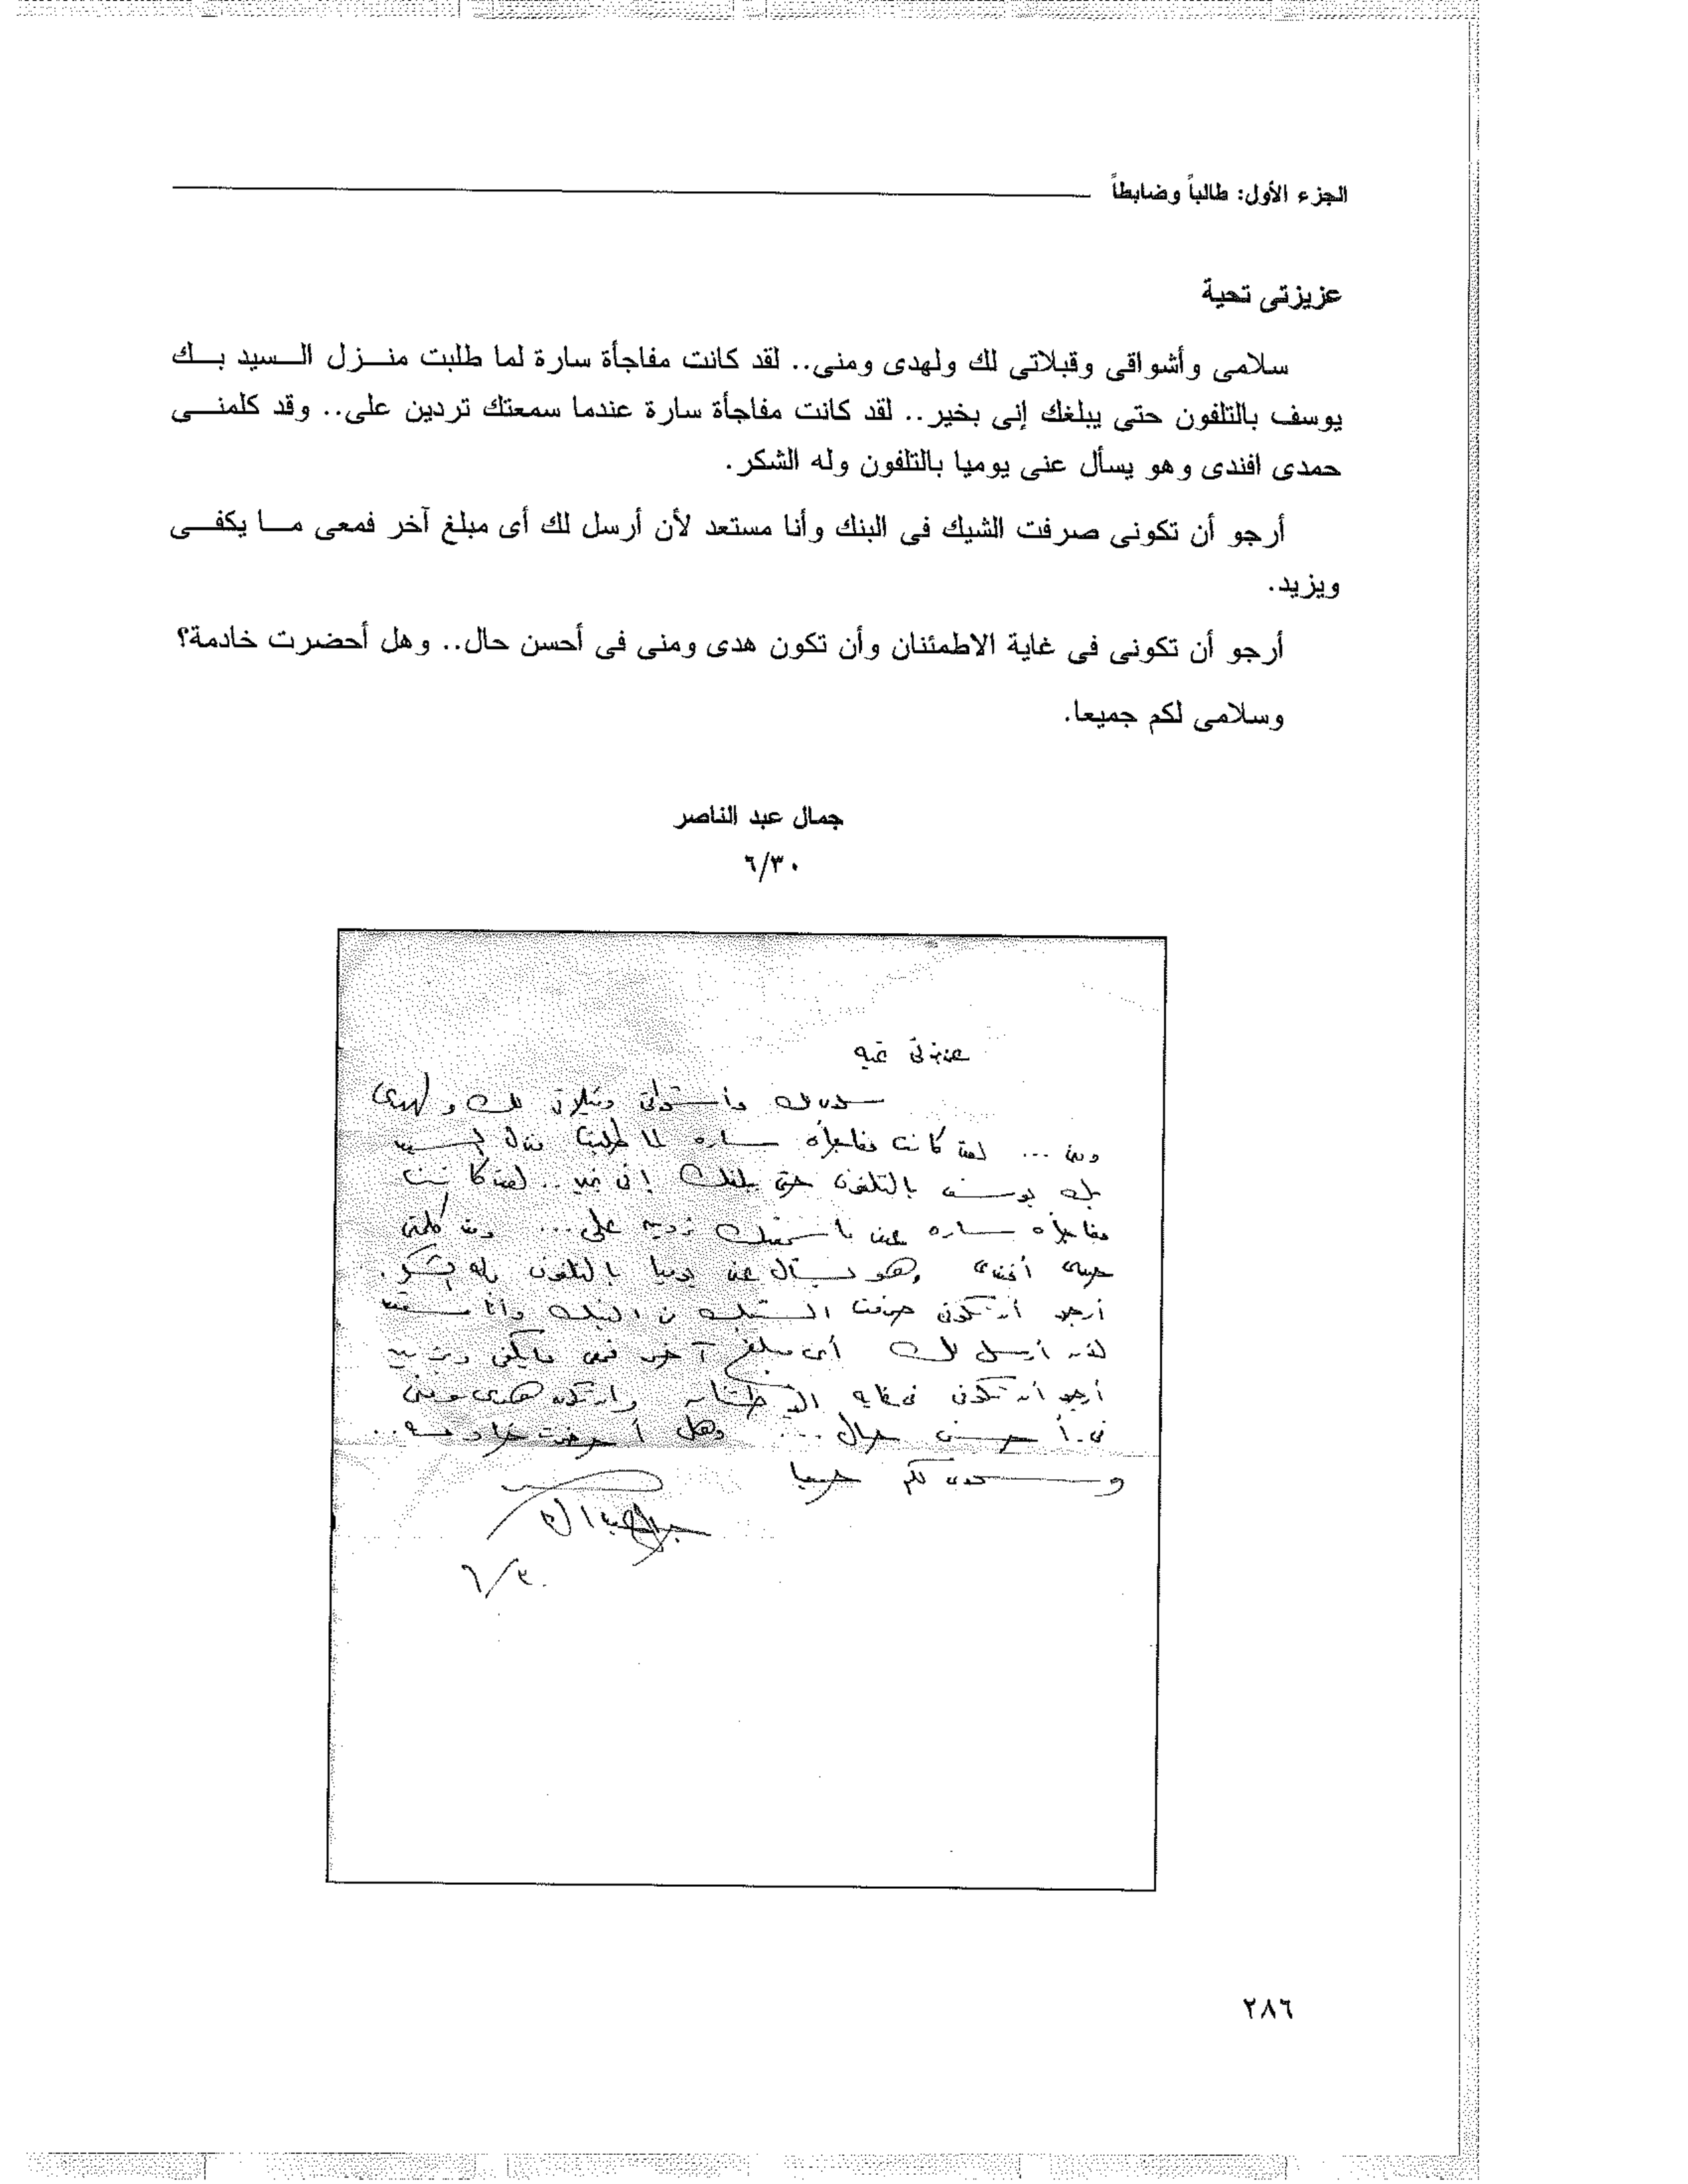 الجزء الأول: طالباً وضابطاً
عزيزتى تحية
سلامى وأشواقى وقبلاتى لك ولهدى ومنى.. لقد كانت مفاجأة سارة لما طلبت منزل السيد بك
يوسف بالتلفون حتى يبلغك إنى بخير.. لقد كانت مفاجأة سارة عندما سمعتك تردين على.. وقد كلمنى
حمدى افندى وهو يسأل عنى يوميا بالتلفون وله الشكر.
أرجو أن تكونى صرفت الشيك فى البنك وأنا مستعد لأن أرسل لك أى مبلغ آخر فمعى ما يكفى
ويزيد.
أرجو أن تكونى فى غاية الاطمئنان وأن تكون هدى ومنى فى أحسن حال.. وهل أحضرت خادمة؟
وسلامى لكم جميعا.
جمال عبد الناصر
٦/٣٠
عزيزتى تحيه
سلامى وأشواقى وقبلاتى لك ولهدى
ومنى ... لقد كانت مفاجأة ساره لما طلبت منزل السيد
بك يوسف بالتلفون حتى يبلغك إنى بخير.. لقد كانت
مفاجأه ساره عندما سمعتك تردين على... وقد كلمنى
حمدى أفندى وهو يسأل عنى يوميا بالتلفون وله الشكر.
أرجو أن تكونى صرفت الشيك فى البنك وأنا مستعد
لأن أرسل لك أى مبلغ آخر فمعى ما يكفى ويزيد
أرجو أن تكونى فى غايه الاطمئنان وان تكون هدى ومنى
فى أحسن حال ... وهل أحضرت خادمه..
وسلامى لكم جميعا
٦/٣٠
٢٨٦